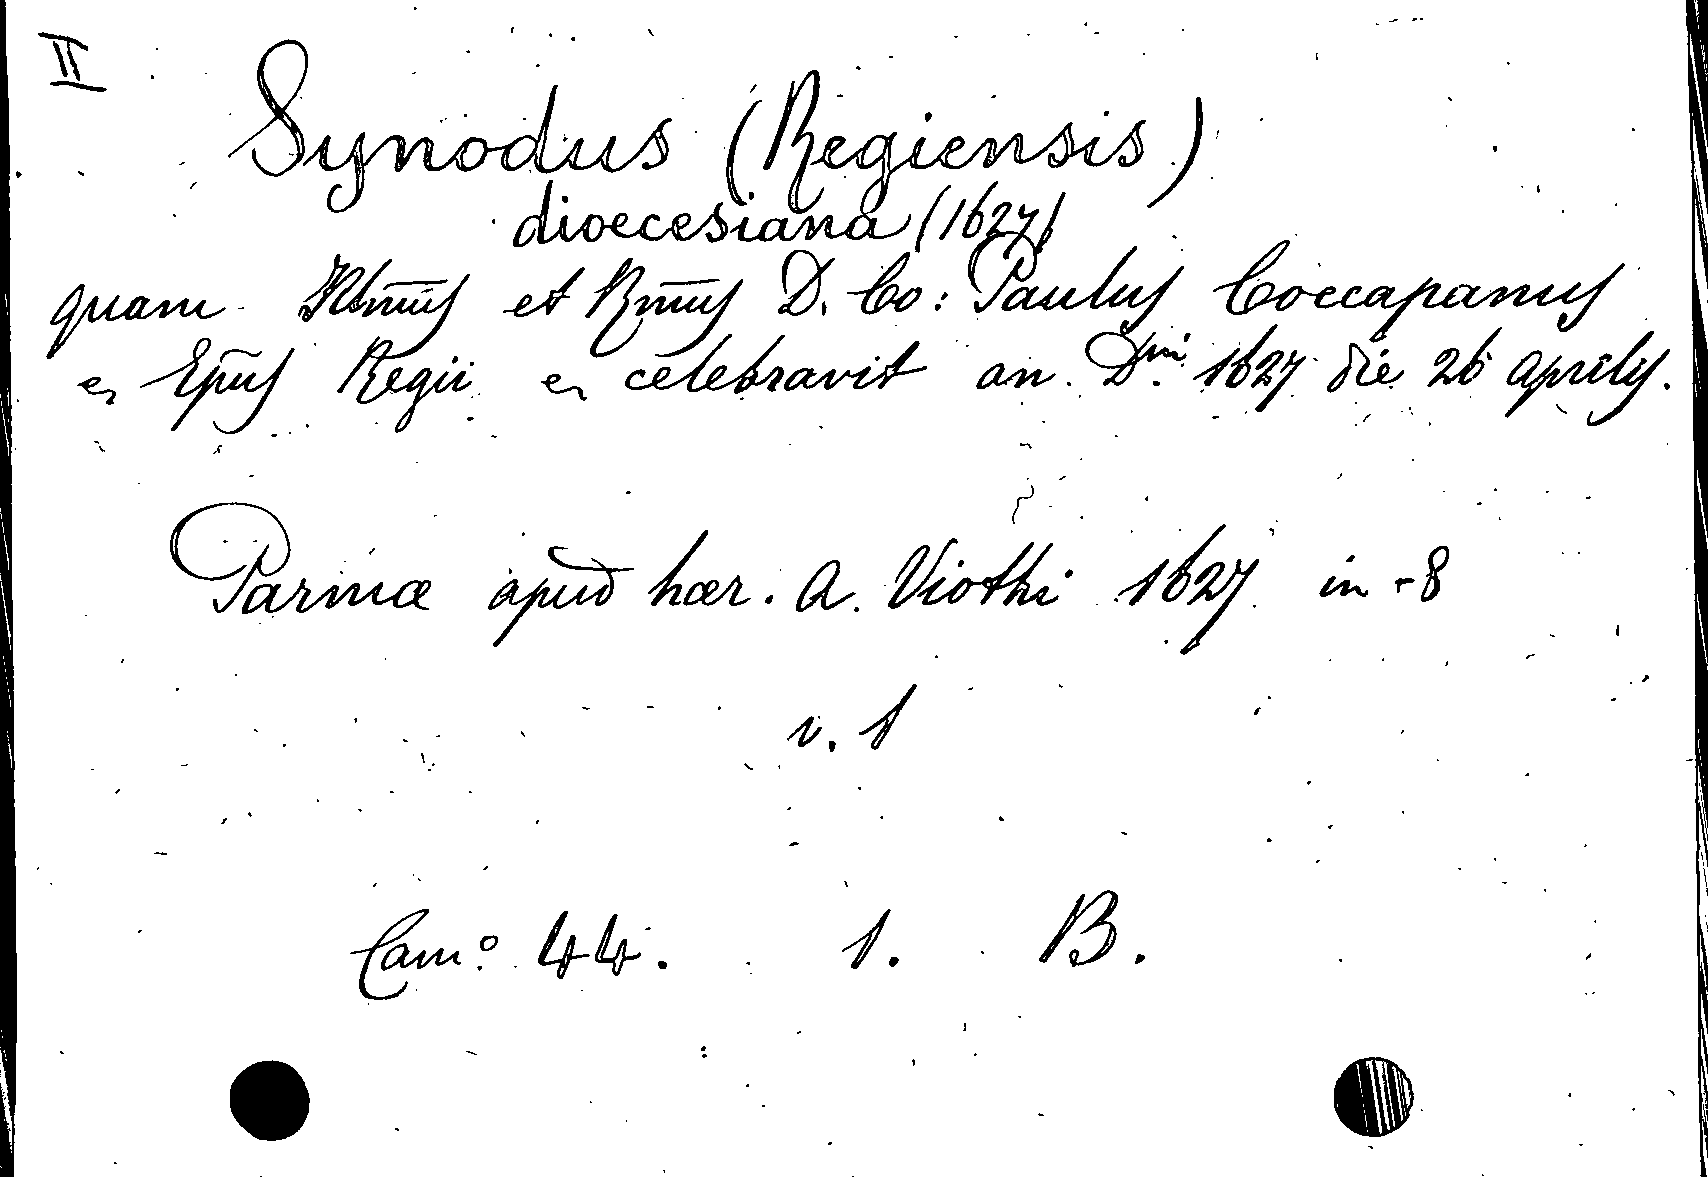 II
Synodus (Regiensis)
dioecesiana (1627)
quam Illm̄us et Rm̄us D. Co: Paulus Coccapanus
Ep̄us Regii celebravit an. Dni. 1627 die 26 aprilis.
Parmæ apud hær. A. Viothi 1627 in-8
v. 1
Cam.º 44. 1. B.